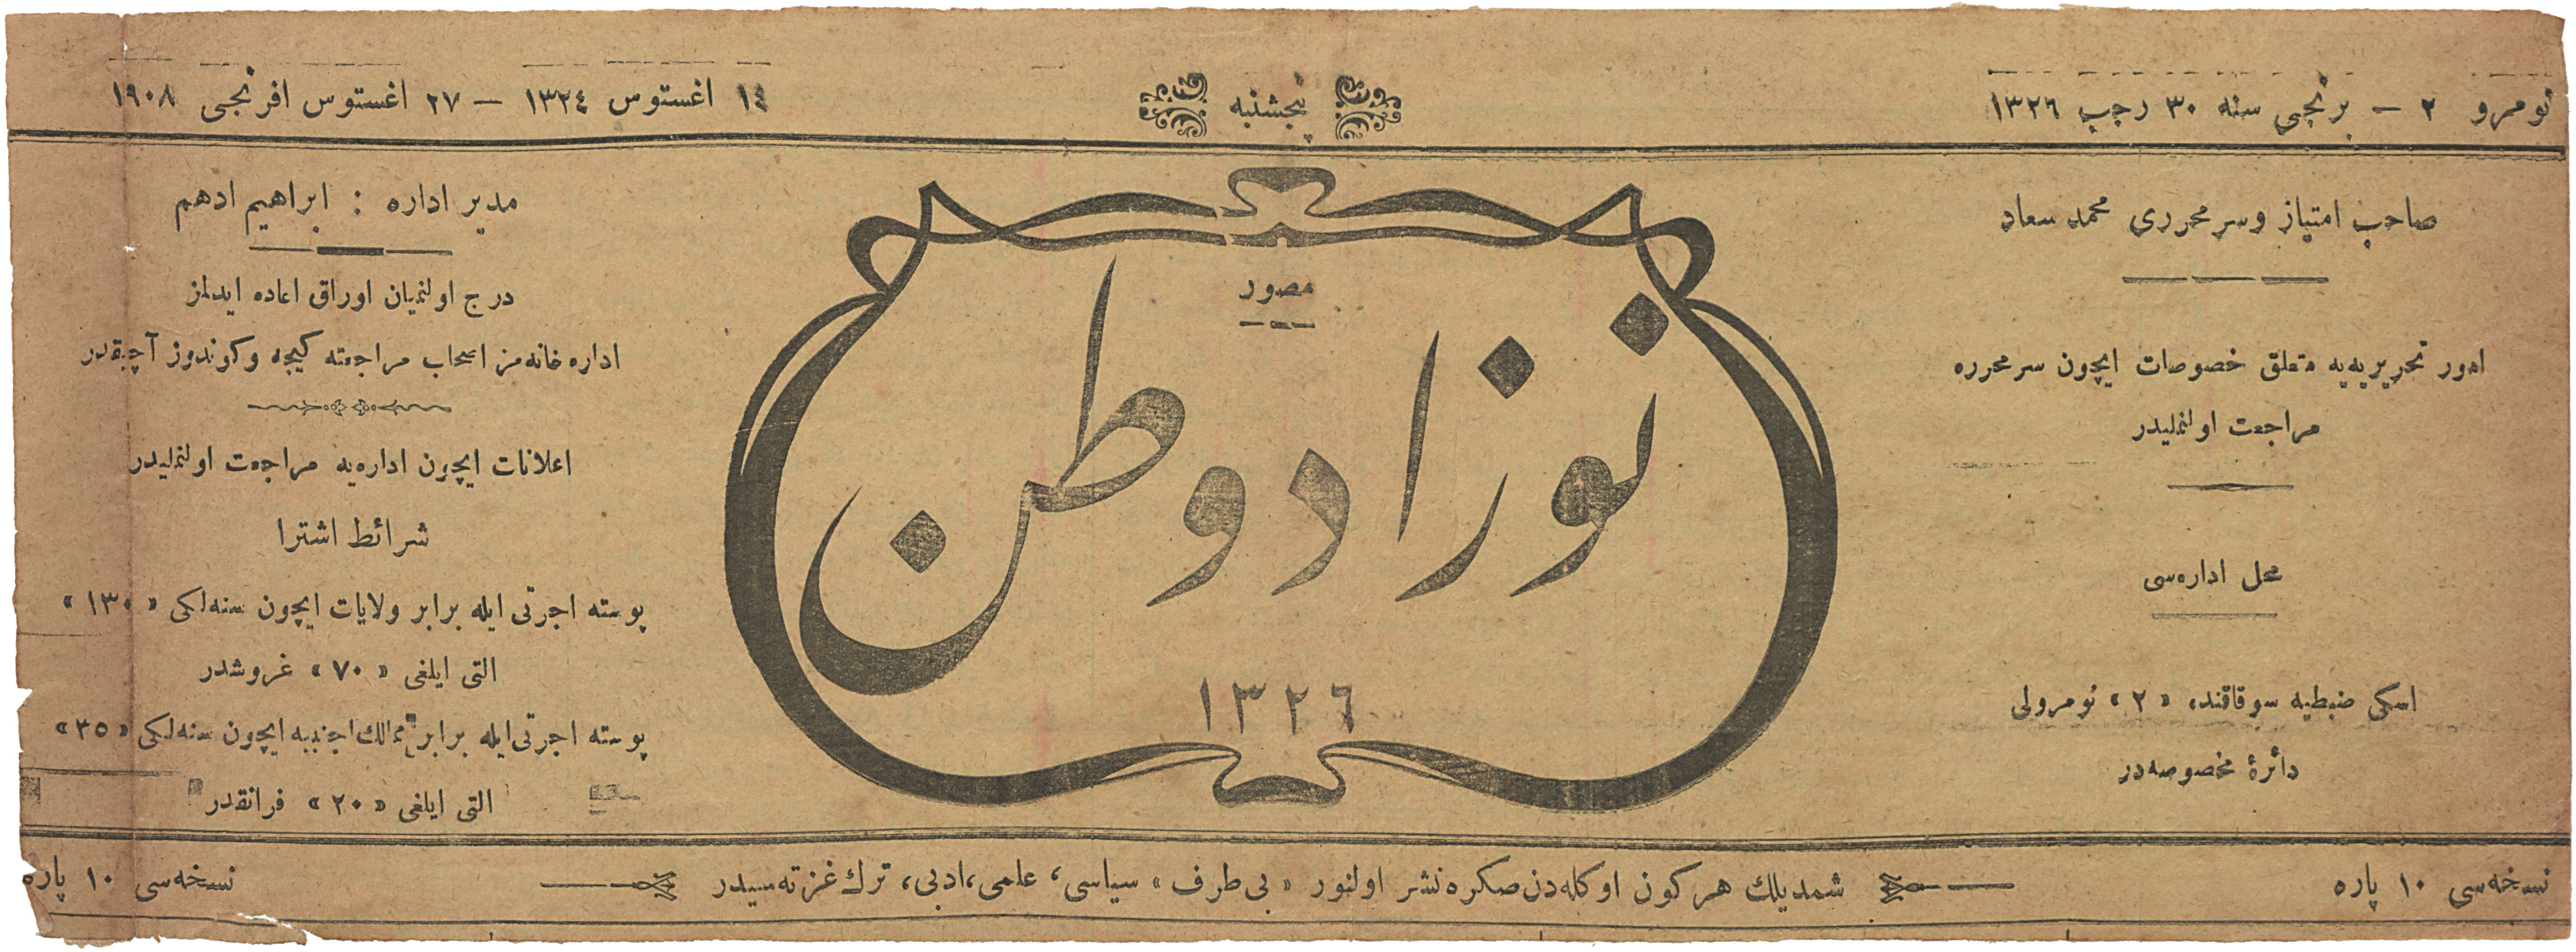 نومرو ٢ — برنجی سنه ٣٠ رجب ١٣٢٦
پنجشنبه
١٤ اغستوس ١٣٢٤ — ٢٧ اغستوس افرنجی ١٩٠٨
صاحب امتیاز وسرمحرری محمد سعاد
امور تحریریه‌یه متعلق خصوصات ایچون سرمحرره
مراجعت اولنملیدر
محل اداره‌سی
اسکی ضبطیه سوقاقنده «٢» نومرولی
دائرهٔ مخصوصه‌در
مصور
نوزاد وطن
١٣٢٦
مدیر اداره : ابراهیم ادهم
درج اولنمیان اوراق اعاده ایدلمز
اداره‌خانه‌مز اصحاب مراجعته کیجه وکوندوز آچیقدر
اعلانات ایچون اداره‌یه مراجعت اولنملیدر
شرائط اشترا
پوسته اجرتی ایله برابر ولایات ایچون سنه‌لکی «١٣٠»
التی ایلغی «٧٠» غروشدر
پوسته اجرتی ایله برابر ممالك اجنبیه ایچون سنه‌لکی «٣٥»
التی ایلغی «٢٠» فرانقدر
نسخه‌سی ١٠ پاره
شمدیلك هرکون اوکله‌دن صکره نشر اولنور «بی‌طرف» سیاسی، علمی، ادبی، ترك غزته‌سیدر
نسخه‌سی ١٠ پاره